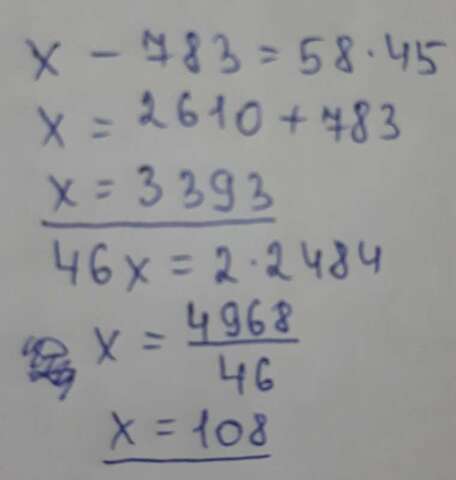 x - 783 = 58 · 45
x = 2610 + 783
x = 3393
46x = 2 · 2484
x = 4968
46
x = 108